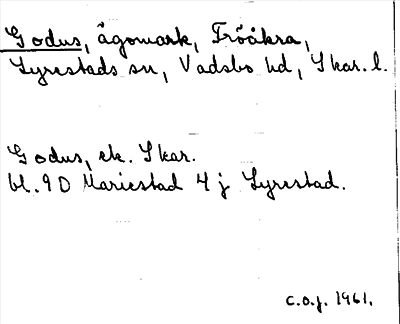 Godus, ågomark, Fröåkra,
Lyrestads sn, Vadsbo hd, Skar. l.
Godus, ek. Skar.
bl. 9 D Mariestad 4 j Lyrestad.
c.o.j. 1961.